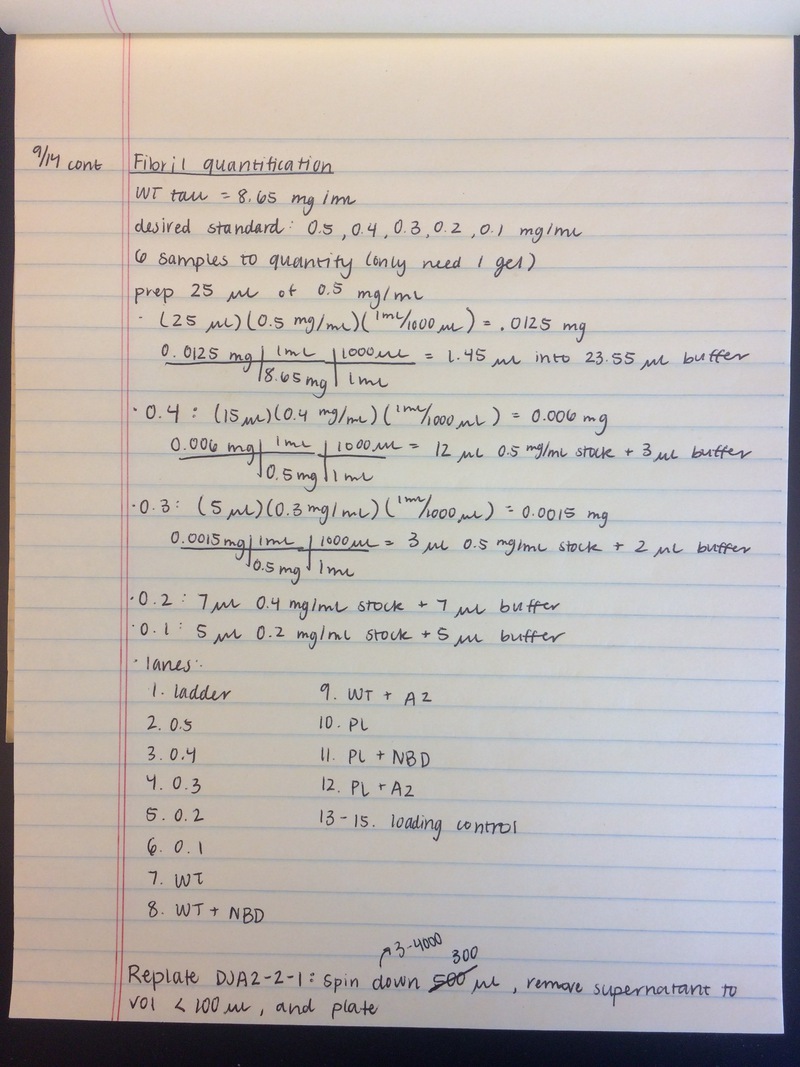 9/14 cont Fibril quantification
WT tau = 8.65 mg/mL
desired standard: 0.5, 0.4, 0.3, 0.2, 0.1 mg/mL
6 samples to quantity (only need 1 gel)
prep 25 μL of 0.5 mg/mL
· (25 μL)(0.5 mg/mL)(1mL/1000 μL) = .0125 mg
0.0125 mg | 1mL | 1000μL = 1.45 μL into 23.55 μL buffer
8.65mg | 1mL
· 0.4 : (15μL)(0.4 mg/mL)(1mL/1000 μL) = 0.006 mg
0.006 mg | 1mL | 1000μL = 12 μL 0.5 mg/mL stock + 3μL buffer
0.5mg | 1mL
· 0.3: (5μL)(0.3mg/mL)(1mL/1000μL) = 0.0015 mg
0.0015mg | 1mL | 1000μL = 3 μL 0.5 mg/mL stock + 2 μL buffer
0.5mg | 1mL
· 0.2: 7μL 0.4 mg/mL stock + 7μL buffer
· 0.1: 5 μL 0.2 mg/mL stock + 5 μL buffer
· lanes:
1. ladder
2. 0.5
3. 0.4
4. 0.3
5. 0.2
6. 0.1
7. WT
8. WT + NBD
9. WT + A2
10. PL
11. PL + NBD
12. PL + A2
13-15. loading control
3-4000
300
Replate DJA2-2-1: Spin down 500 μL, remove supernatant to
vol < 100 μL, and plate